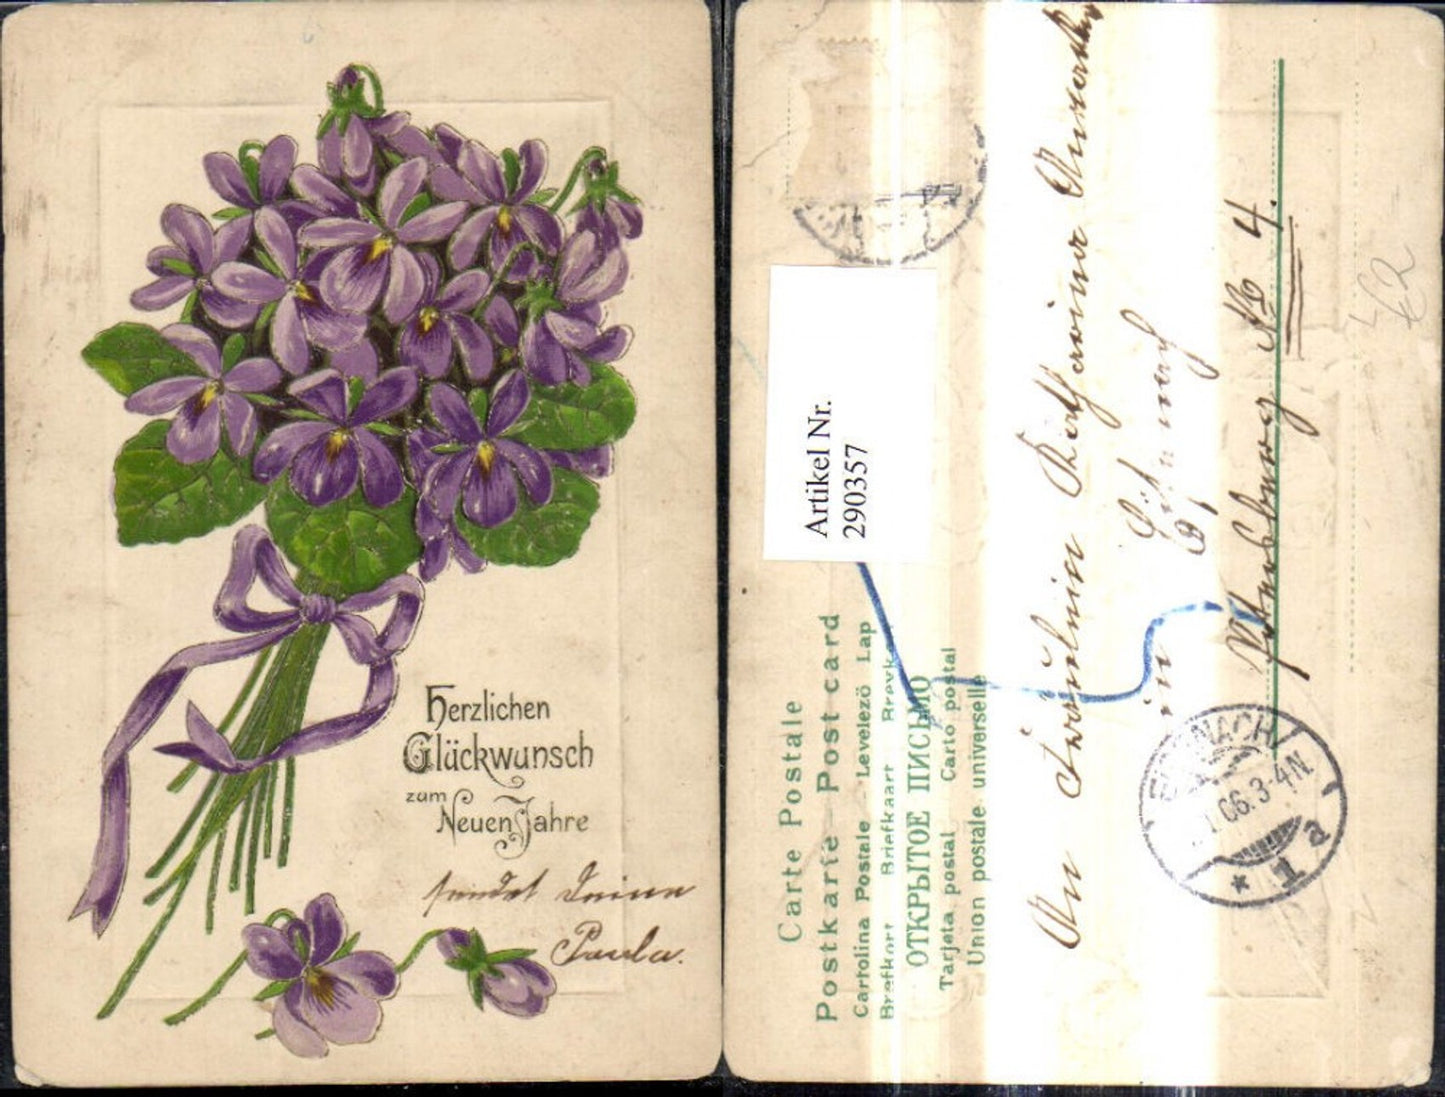 Herzlichen
Glückwunsch
zum
Neuen Jahre
sendet Deine
Paula.
Artikel Nr.
290357
Carte Postale
Postkarte - Post card
Cartolina Postale - Levelezö Lap
Brefkort Briefkaart
ОТКРЫТОЕ ПИСЬМО
Tarjeta postal Carto postal
Union postale universelle
An Fräulein Katharina
in
Petersberg No 4.
06.3-4N.